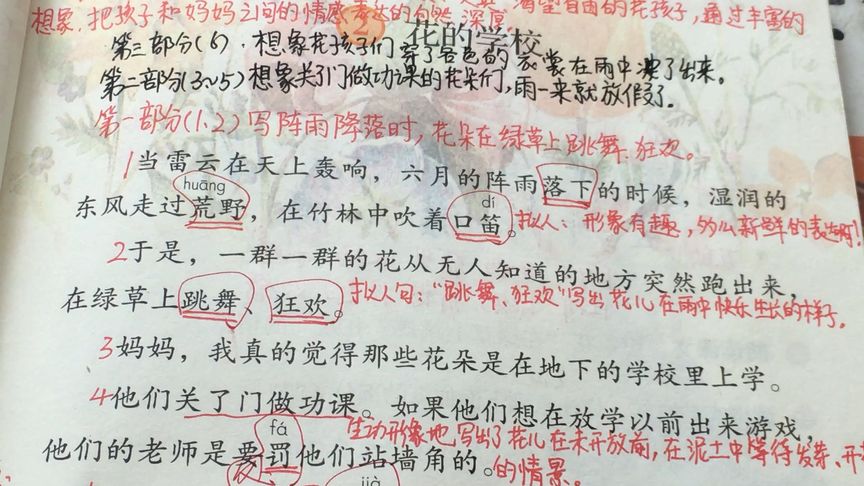 想象,把孩子和妈妈之间的情感表达的自然、深厚。
渴望自由的花孩子,通过丰富的
② 花的学校
第三部分(6)·想象花孩子们穿了各色的衣裳在雨中冲了出来。
第二部分(3~5)想象关了门做功课的花朵们,雨一来就放假了。
第一部分(1、2)写阵雨降落时,花朵在绿草上跳舞、狂欢。
1当雷云在天上轰响,六月的阵雨落下的时候,湿润的
huāng
dí
东风走过荒野,在竹林中吹着口笛。
拟人:形象有趣,多么新鲜的表达啊!
2于是,一群一群的花从无人知道的地方突然跑出来,
在绿草上跳舞、狂欢。
拟人句:“跳舞、狂欢”写出花儿在雨中快乐生长的样子。
3妈妈,我真的觉得那些花朵是在地下的学校里上学。
4他们关了门做功课。如果他们想在放学以前出来游戏,
fá
生动形象地写出了花儿在未开放前,在泥土中等待发芽、开
他们的老师是要罚他们站墙角的。
的情景。
jià